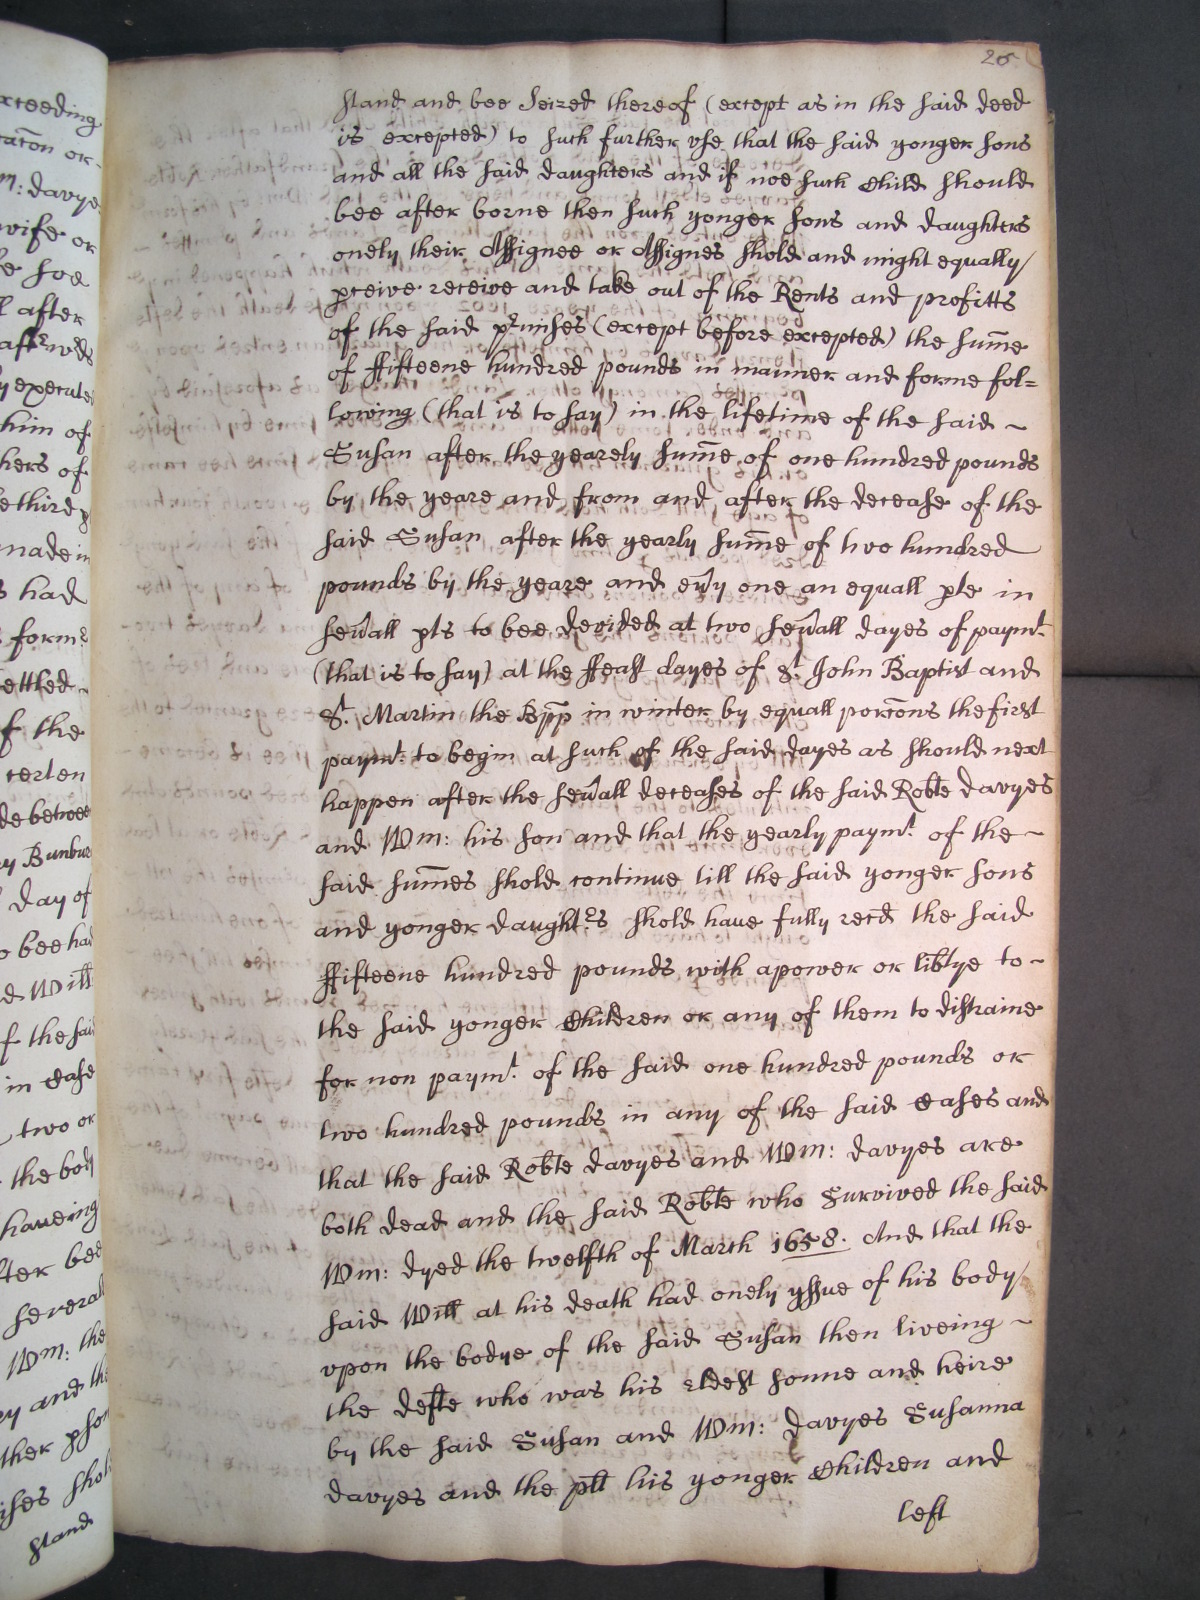 26
stand and bee Seized thereof (except as in the said deed
is excepted) to such further vse that the said yonger sons
and all the said daughters and if noe such Child should
bee after borne then such yonger sons and daughters
onely their Assignee or Assignes shold and might equally
pceive receive and take out of the Rents and profitts
of the said prmises (except before excepted) the sum̄e
of ffifteene hundred pounds in manner and forme fol=
lowing (that is to say) in the lifetime of the said ~
Susan after the yearely sum̄e of one hundred pounds
by the yeare and from and after the decease of the
said Susan after the yearly sum̄e of two hundred
pounds by the yeare and eu͠y one an equall pte in
seu͠all pts to bee devided at two seu͠all dayes of paymt.
(that is to say) at the ffeast dayes of St. John Baptist and
St. Martin the Bpp̄ in winter by equall porc̄ons the first
paymt. to begin at such of the said dayes as should next
happen after the seu͠all deceases of the said Robte davyes
and Wm: his son and that the yearly paymt. of the ~
said sum̄es shold continue till the said yonger sons
and yonger daughtrs shold have fully recd̄ the said
ffifteene hundred pounds with a power or lib̄tye to ~
the said yonger Children or any of them to distraine
for non paymt. of the said one hundred pounds or
two hundred pounds in any of the said Cases and
that the said Robte davyes and Wm: davyes are
both dead and the said Robte who Survived the said
Wm: dyed the twelfth of March 1658. And that the
said Will at his death had onely yssue of his body
vpon the bodye of the said Susan then liveing ~
the defte who was his eldest sonne and heire
by the said Susan and Wm: davyes Susanna
davyes and the plt his yonger Children and
left
xceeding
m: davye
wife or
l after
y execute
him of
hers of
e third p
made in
s had
forme
ettled
f the
certen
de betwee
y Bunbur
day of
o bee had
d Will
f the said
in Case
two or
the body
haveing
fter bee
several
Wm: the
y and the
ther pson
ises shol
stand